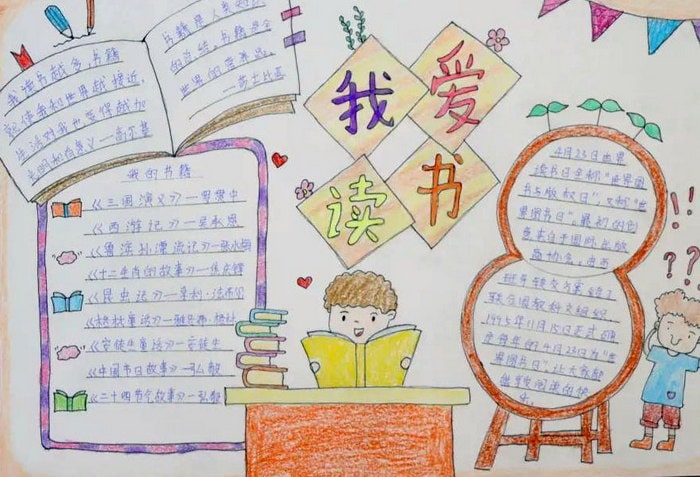 我读书越多，书籍
就使我和世界越接近，
生活对我也变得越加
光明和有意义—高尔基
书籍是人类知识
的总结，书籍是全
世界的营养品。
—莎士比亚
我爱
读书
我的书籍
《三国演义》—罗贯中
《西游记》—吴承恩
《鲁滨孙漂流记》—张小娟
《十二生肖的故事》—
《昆虫记》—亨利·法布尔
《格林童话》—雅各布·格林
《安徒生童话》—安徒生
《中国节日故事》—弘毅
《二十四节气故事》—弘毅
4月23日世界
读书日全称"世界图
书与版权日"，又称"世
界图书日"，最初的创
意来自于国际出版
商协会，由西
班牙转交方案给了
联合国教科文组织
1995年11月15日正式确
定每年的4月23日为"世
界图书日"，让大家都
能享受阅读的快
乐。
!!
???